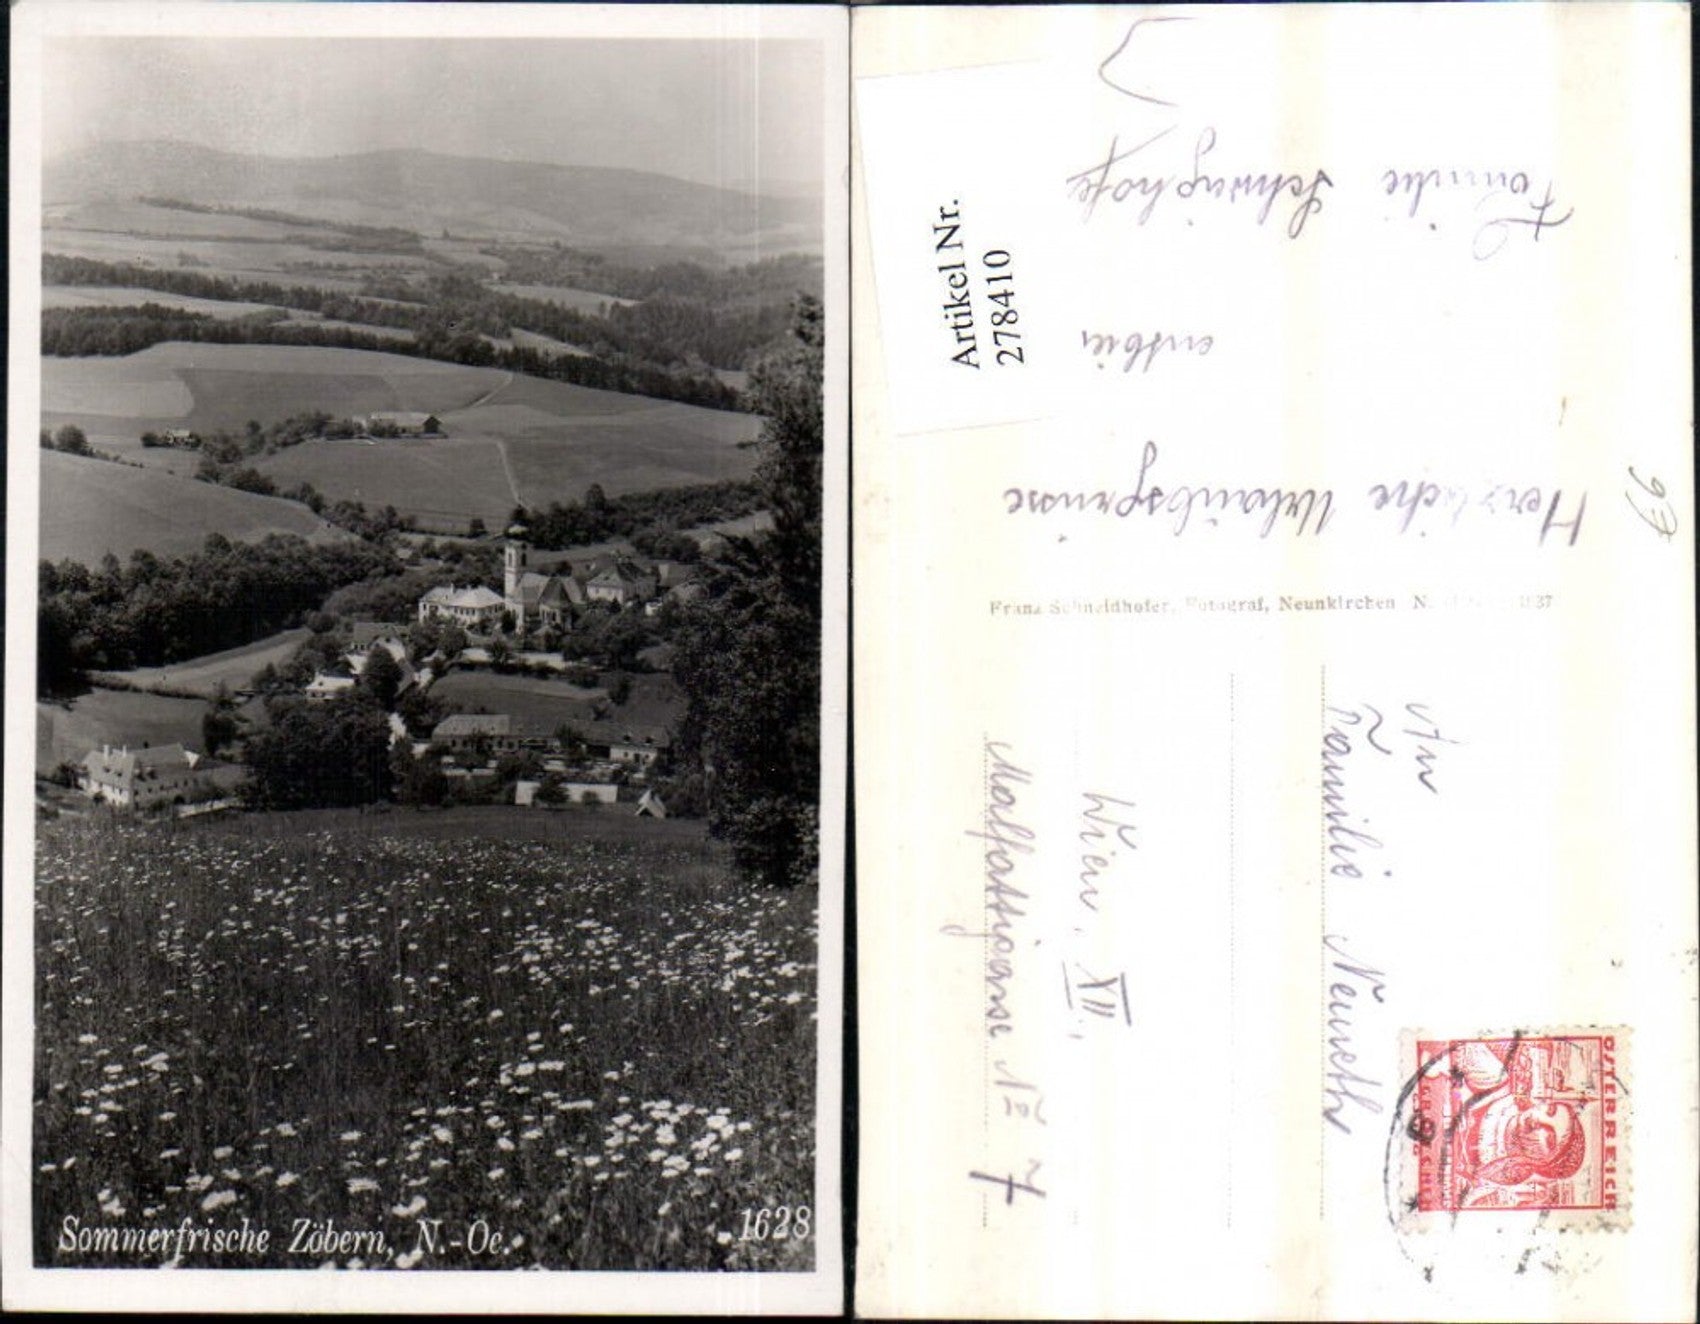 Sommerfrische Zöbern, N.-Oe.
1628
Artikel Nr.
278410
Herzliche Urlaubsgrüsse
entbiet
Familie
Franz Schneidhofer, Fotograf, Neunkirchen N.
An
Familie Nemeth
Wien, XII.,
Malfattigasse No 7
ÖSTERREICH